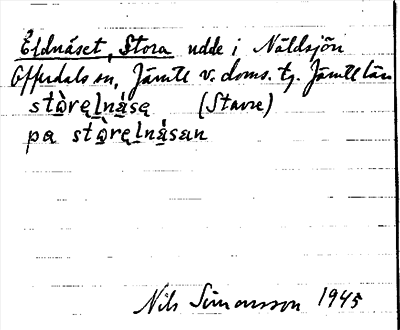 Eldnäset, Stora udde i Näldsjön
Offerdals sn, Jämtl v. doms. tg. Jämtl län
stòręlnásę (Stavre)
pa stòręlnásan
Nils Simonsson 1945